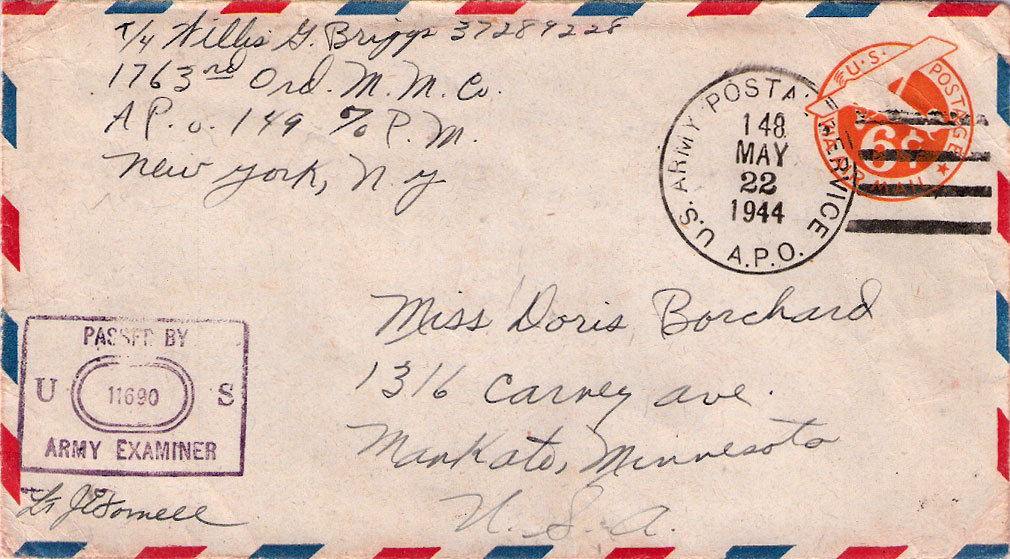 T/4 Willis G. Briggs 37289228
1763rd Ord. M. M. Co.
A P. O. 149 % P. M.
New York, N. Y
U.S. POSTAGE
6¢
AIR MAIL
U.S. ARMY POSTAL SERVICE
148
MAY
22
1944
A.P.O.
Miss Doris Borchard
1316 Carney ave.
Mankato, Minnesota
U. S. A.
PASSED BY
U 11690 S
ARMY EXAMINER
Lt